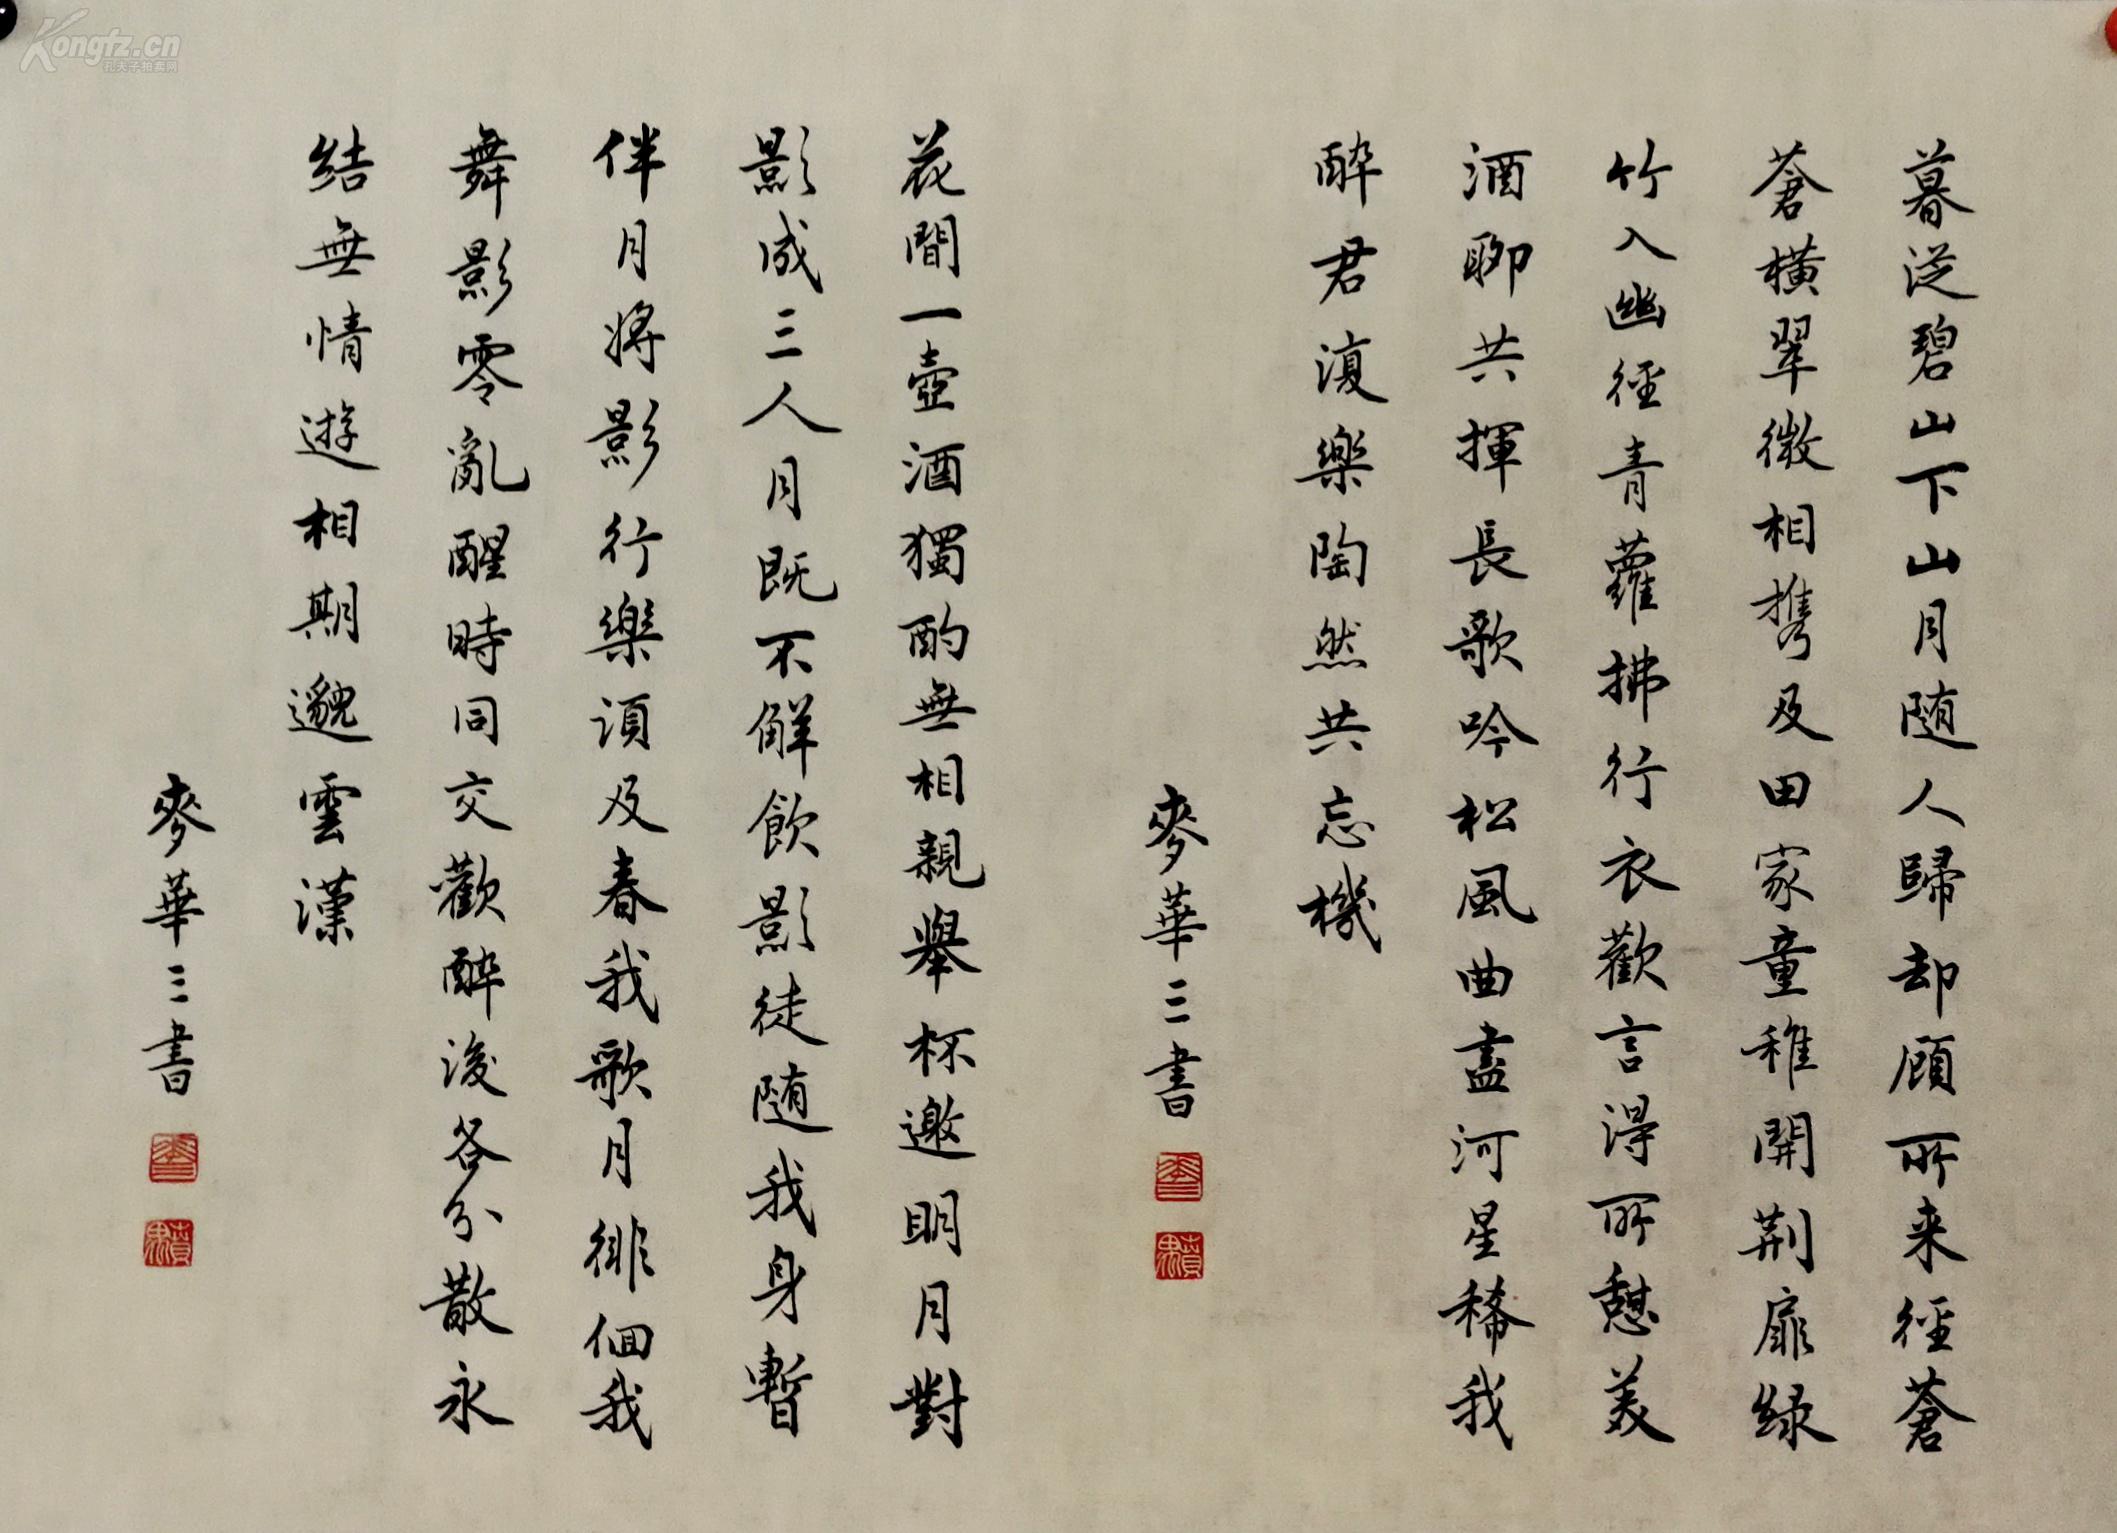 暮從碧山下山月随人歸却顧所来徑蒼
蒼橫翠微相携及田家童稚開荆扉緑
竹入幽徑青蘿拂行衣歡言得所憩美
酒聊共揮長歌吟松風曲盡河星稀我
醉君復樂陶然共忘機
麥華三書
花間一壺酒獨酌無相親舉杯邀明月對
影成三人月既不解飲影徒随我身暫
伴月将影行樂須及春我歌月徘徊我
舞影零亂醒時同交歡醉後各分散永
結無情遊相期邈雲漢
麥華三書
Kongfz.cn
孔夫子拍卖网